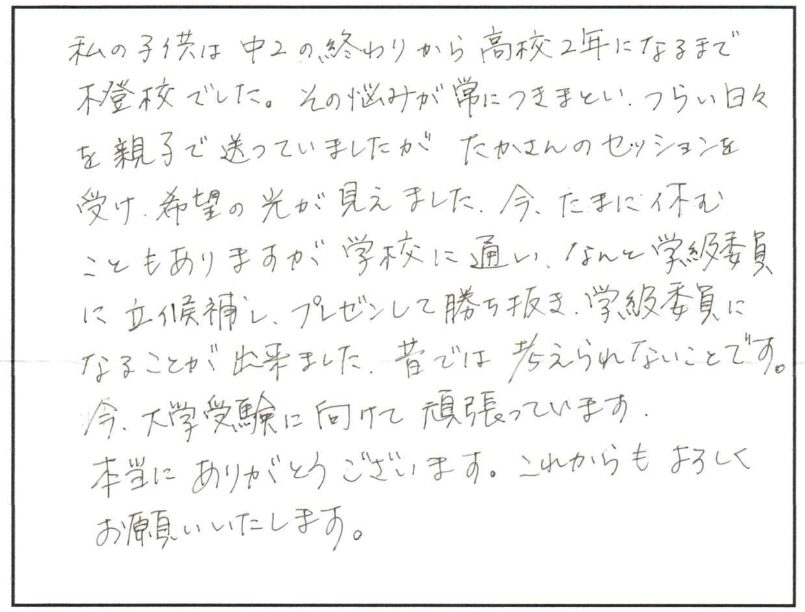 私の子供は中2の終わりから高校2年になるまで
不登校でした。その悩みが常につきまとい、つらい日々
を親子で送っていましたが たかさんのセッションを
受け、希望の光が見えました、今、たまに休む
こともありますが学校に通い、なんと学級委員
に立候補し、プレゼンして勝ち抜き、学級委員に
なることが出来ました、昔では考えられないことです。
今、大学受験に向けて頑張っています、
本当にありがとうございます。これからもよろしく
お願いいたします。